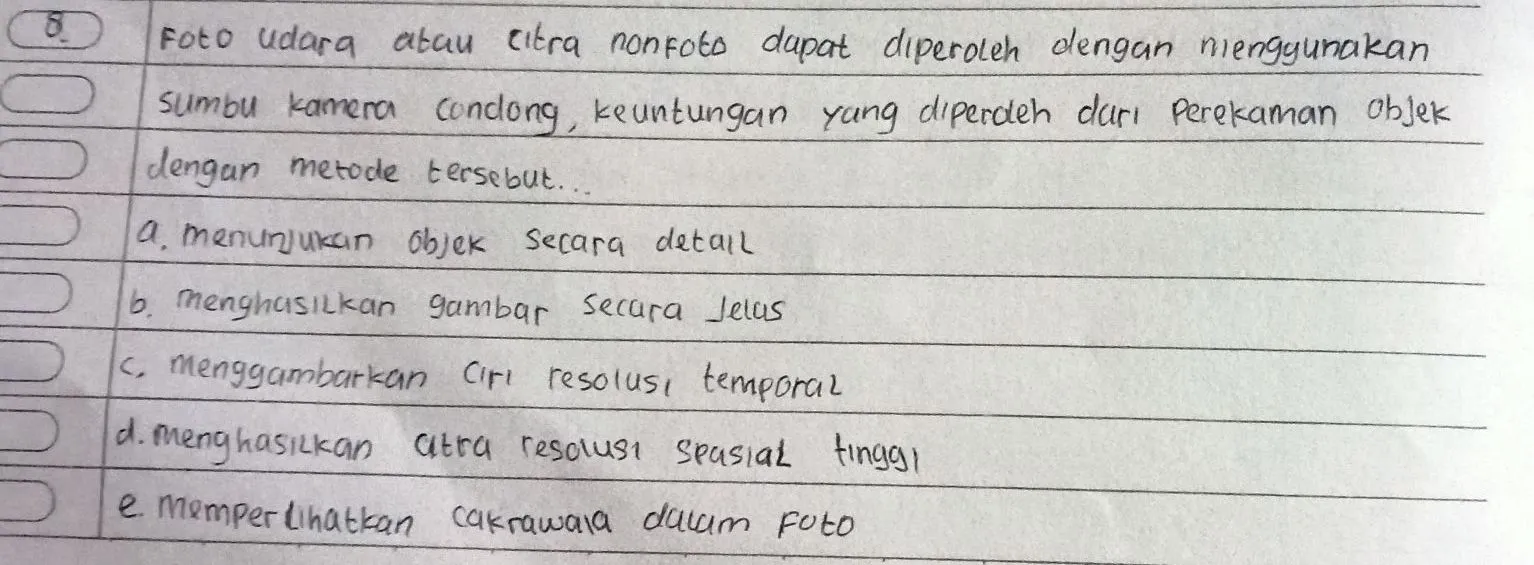 8. Foto udara atau citra nonfoto dapat diperoleh dengan menggunakan
sumbu kamera condong, keuntungan yang diperoleh dari perekaman objek
dengan metode tersebut...
a. menunjukan objek secara detail
b. menghasilkan gambar secara jelas
c. menggambarkan ciri resolusi temporal
d. menghasilkan citra resolusi spasial tinggi
e. memperlihatkan cakrawala dalam foto